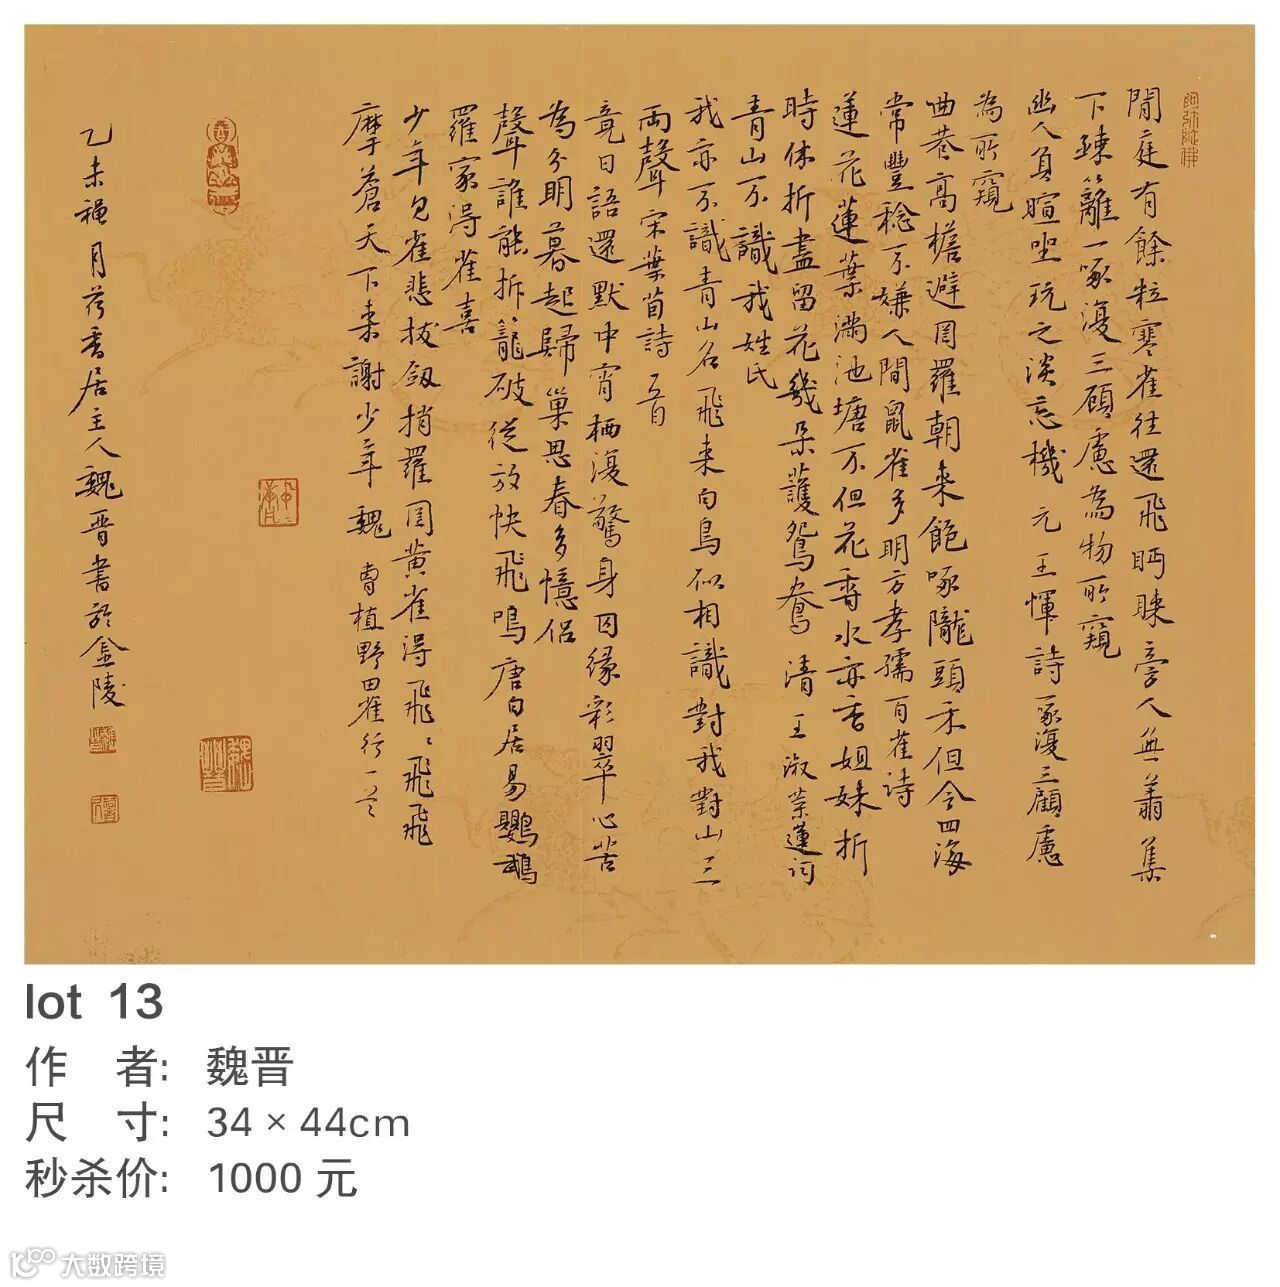 阿弥陀佛
閒庭有餘粒寒雀往還飛眄睞旁人無蓊集
下疎籬一啄復三顧慮為物所窺
幽人負暄坐玩之淡忘機 元王惲詩啄復三顧慮
為所窺
曲巷高檐避罔羅朝来飽啄隴頭禾但令四海
常豐稔不嫌人間鼠雀多明方孝孺百雀詩
蓮花蓮葉滿池塘不但花香水亦香姐妹折
時休折盡留花幾朵護鴛鴦 清王淑 蓮詞
青山不識我姓氏
我亦不識青山名飛来白鳥似相識對我對山三
兩聲宋葉茵詩 二首
竟日語還默中宵栖復驚身囚緣彩翠心苦
為分明暮起歸巢思春多憶侣
聲誰能拆籠破從放快飛鳴唐白居易鸚鵡
羅家得雀喜
少年見雀悲拔劔捎羅罔黄雀得飛飛〻飛飛
摩蒼天下来謝少年 魏曹植野田雀行一首
乙未福月荷香居主人魏晋書於金陵
魏晋
lot 13
作 者: 魏晋
尺 寸: 34 × 44cm
秒杀价: 1000 元
大数跨境